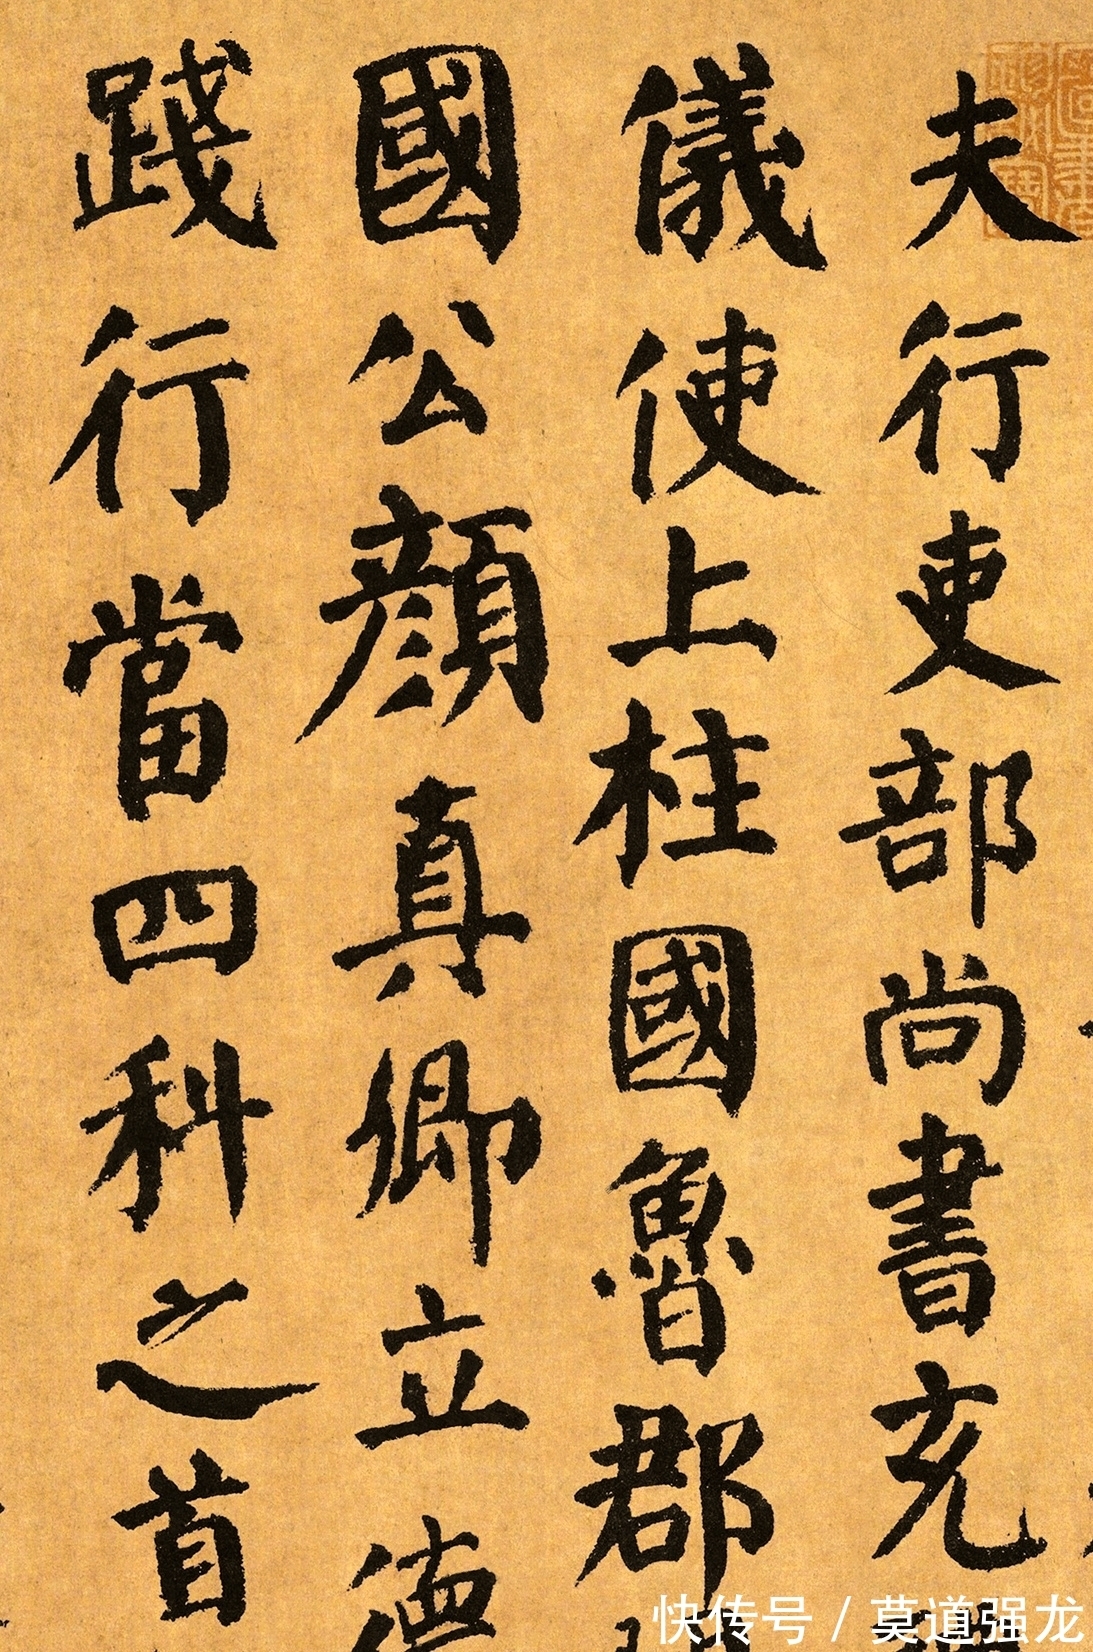 夫行吏部尚書充
儀使上柱國魯郡
國公顏真卿立德
踐行當四科之首
快传号 / 莫道强龙